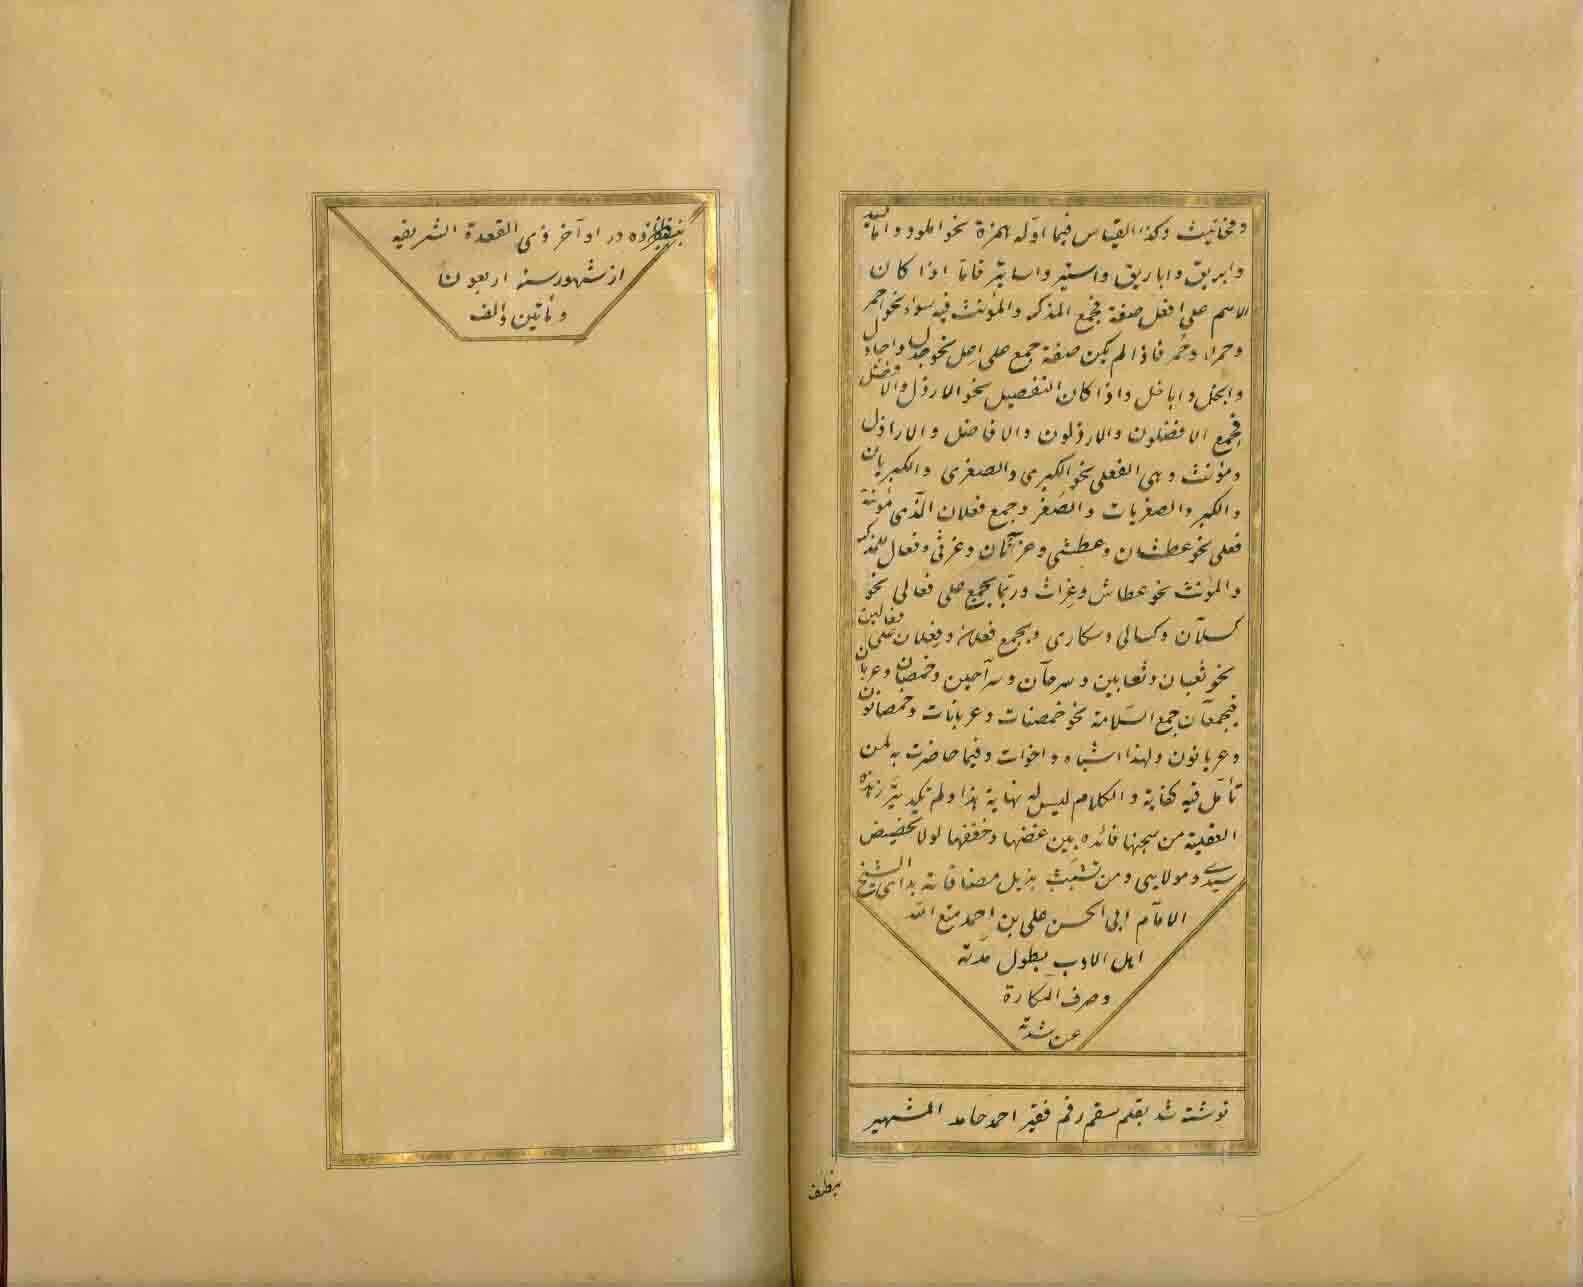 ومخانيث وكذا القياس فيما اوله همزة نحو املود واماليد
وابريق واباريق واستير واساتير فاما اذا كان
الاسم على افعل صفة فجمع المذكر والمؤنث فيه سواء نحو احمر
وحمراء وحمر فاذا لم يكن صفة جمع على افاعل نحو اجدل واجادل
وابخل واباخل واذا كان التفضيل نحو الارذل والافضل
فجمع الافضلون والارذلون والافاضل والاراذل
ومؤنث وهى الفعلى نحو الكبرى والصغرى والكبريات
والكبر والصغريات والصغر وجمع فعلان الذى مؤنثه
فعلى نحو عطشان وعطشى وغرثان وغرثى وفعال للمذكر
والمؤنث نحو عطاش وغراث وربما يجمع على فعالى نحو
كسلان وكسالى وسكارى ويجمع فعلان وفعلان على فعالين
نحو ثعبان وثعابين وسرحان وسراحين وخمصان وعريان
فيجمعان جمع السلامة نحو خمصانات وعريانات وخمصانون
وعريانون ولهذا اشباه واخوات وفيما حاضرت به لمن
تأمل فيه كفاية والكلام ليس له نهاية هذا ولم تكد
العقلية من سجنها فائده بين غضها وخففها لولا تحضيض
سيدى ومولايى ومن تشبث بذيل مصافاته يداى الشيخ
الامام ابى الحسن على بن احمد متع الله
اهل الادب بطول مدته
وصرف المكاره
عن شدته
نوشته شد بقلم سقم رقم فقير احمد حامد الشهير
بنظيف
در اوآخر ذى القعدة الشريفه
از شهور سنه اربعون
ومأتين والف